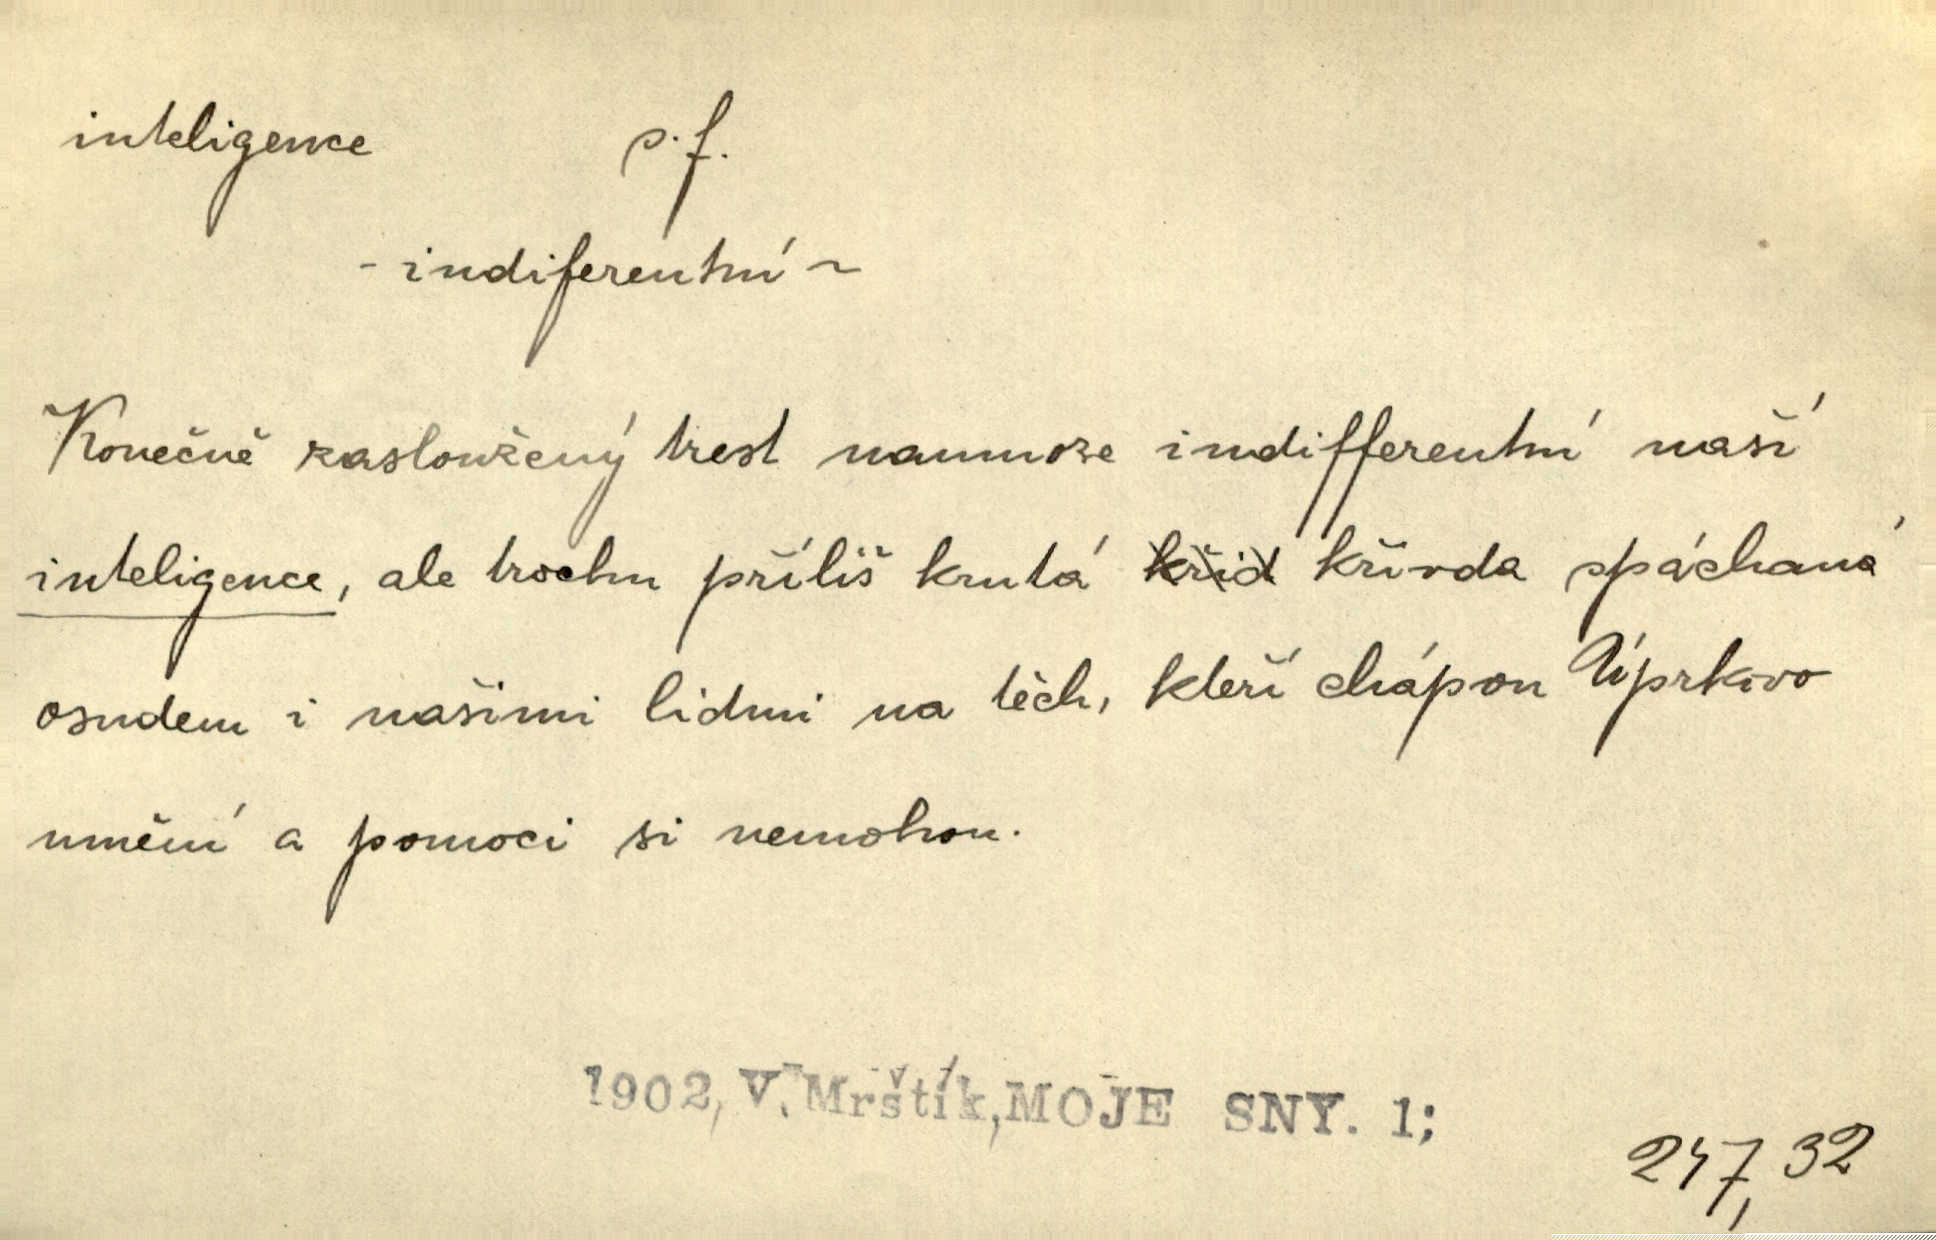 inteligence s. f.
- indiferentní ~
Konečně zasloužený trest nanmoze indifferentní naší
inteligence, ale trochu příliš krutá křid křivda spáchaná
osudem i našimi lidmi na těch, kteří chápou Úprkovo
umění a pomoci si nemohou.
1902, V. Mrštík, MOJE SNY. 1;
247, 32